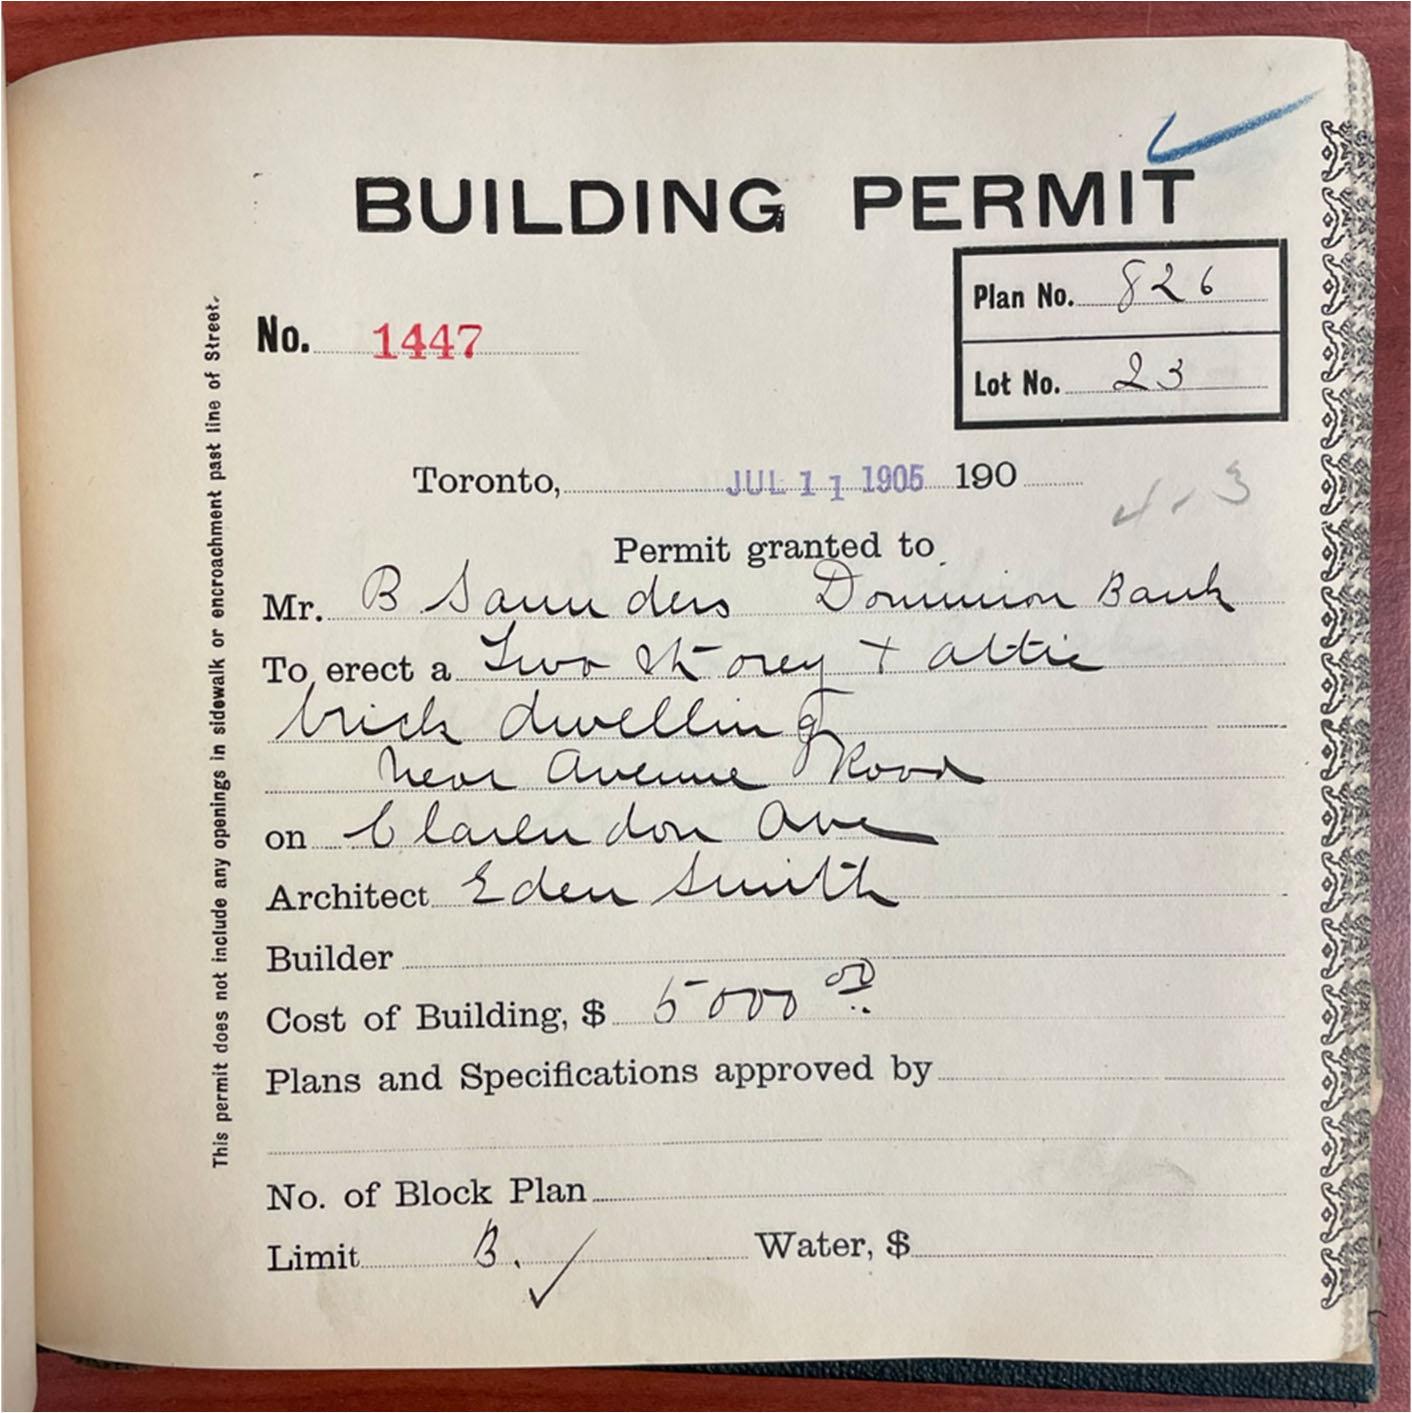 BUILDING PERMIT
Plan No. 826
No. 1447
Lot No. 23
Toronto, JUL 11 1905 190
4-3
Permit granted to
Mr. B Saunders Dominion Bank
To erect a Two Storey + attic
brick dwelling
near Avenue Road
on Clarendon Ave
Architect Eden Smith
Builder
Cost of Building, $ 5000 00
Plans and Specifications approved by
No. of Block Plan
Limit B. Water, $
This permit does not include any openings in sidewalk or encroachment past line of Street.